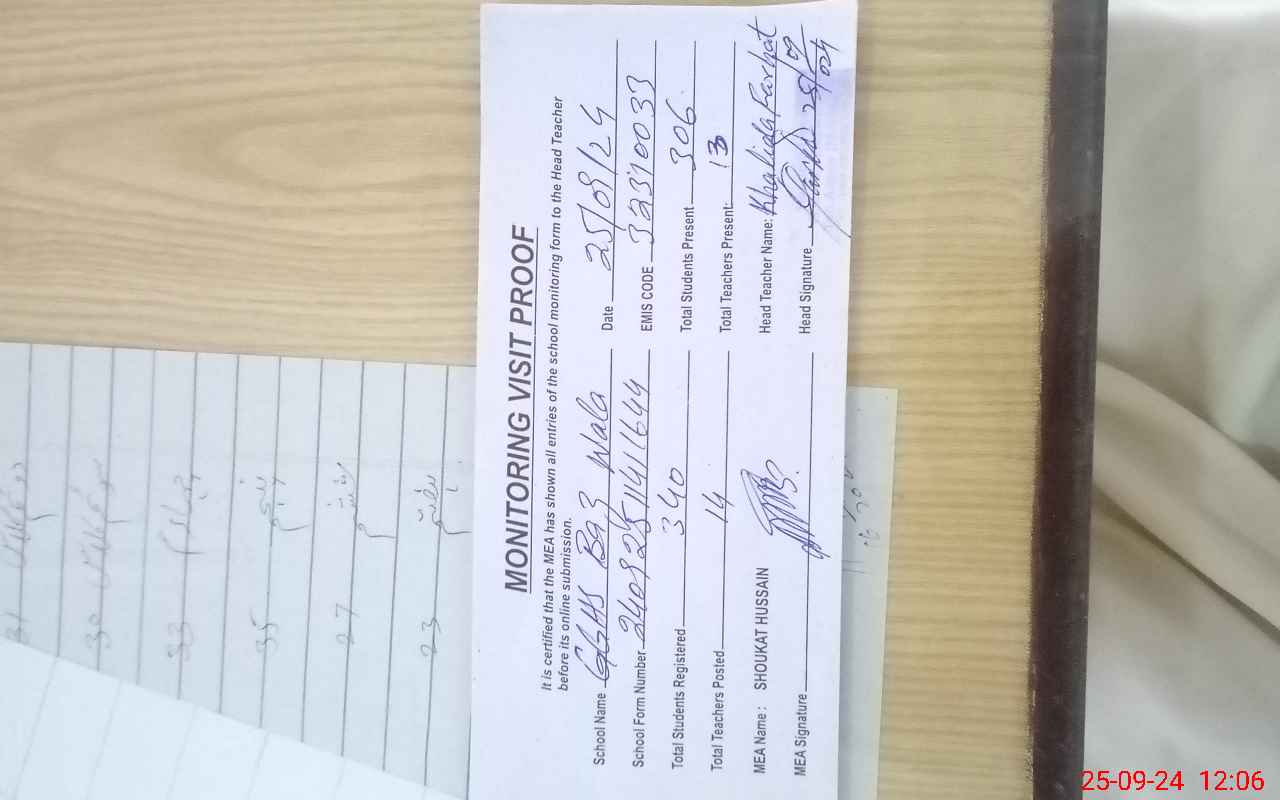 MONITORING VISIT PROOF
It is certified that the MEA has shown all entries of the school monitoring form to the Head Teacher
before its online submission.
School Name GGHS Baz Wala Date 25/09/24
School Form Number 240925114141644 EMIS CODE 32310033
Total Students Registered 340 Total Students Present 306
Total Teachers Posted 14 Total Teachers Present: 13
MEA Name : SHOUKAT HUSSAIN Head Teacher Name: Khalida Farhat
MEA Signature Head Signature 25/09/024
30
33 چہارم
35 پنجم
27 ششم
23 ہفتم
25-09-24 12:06